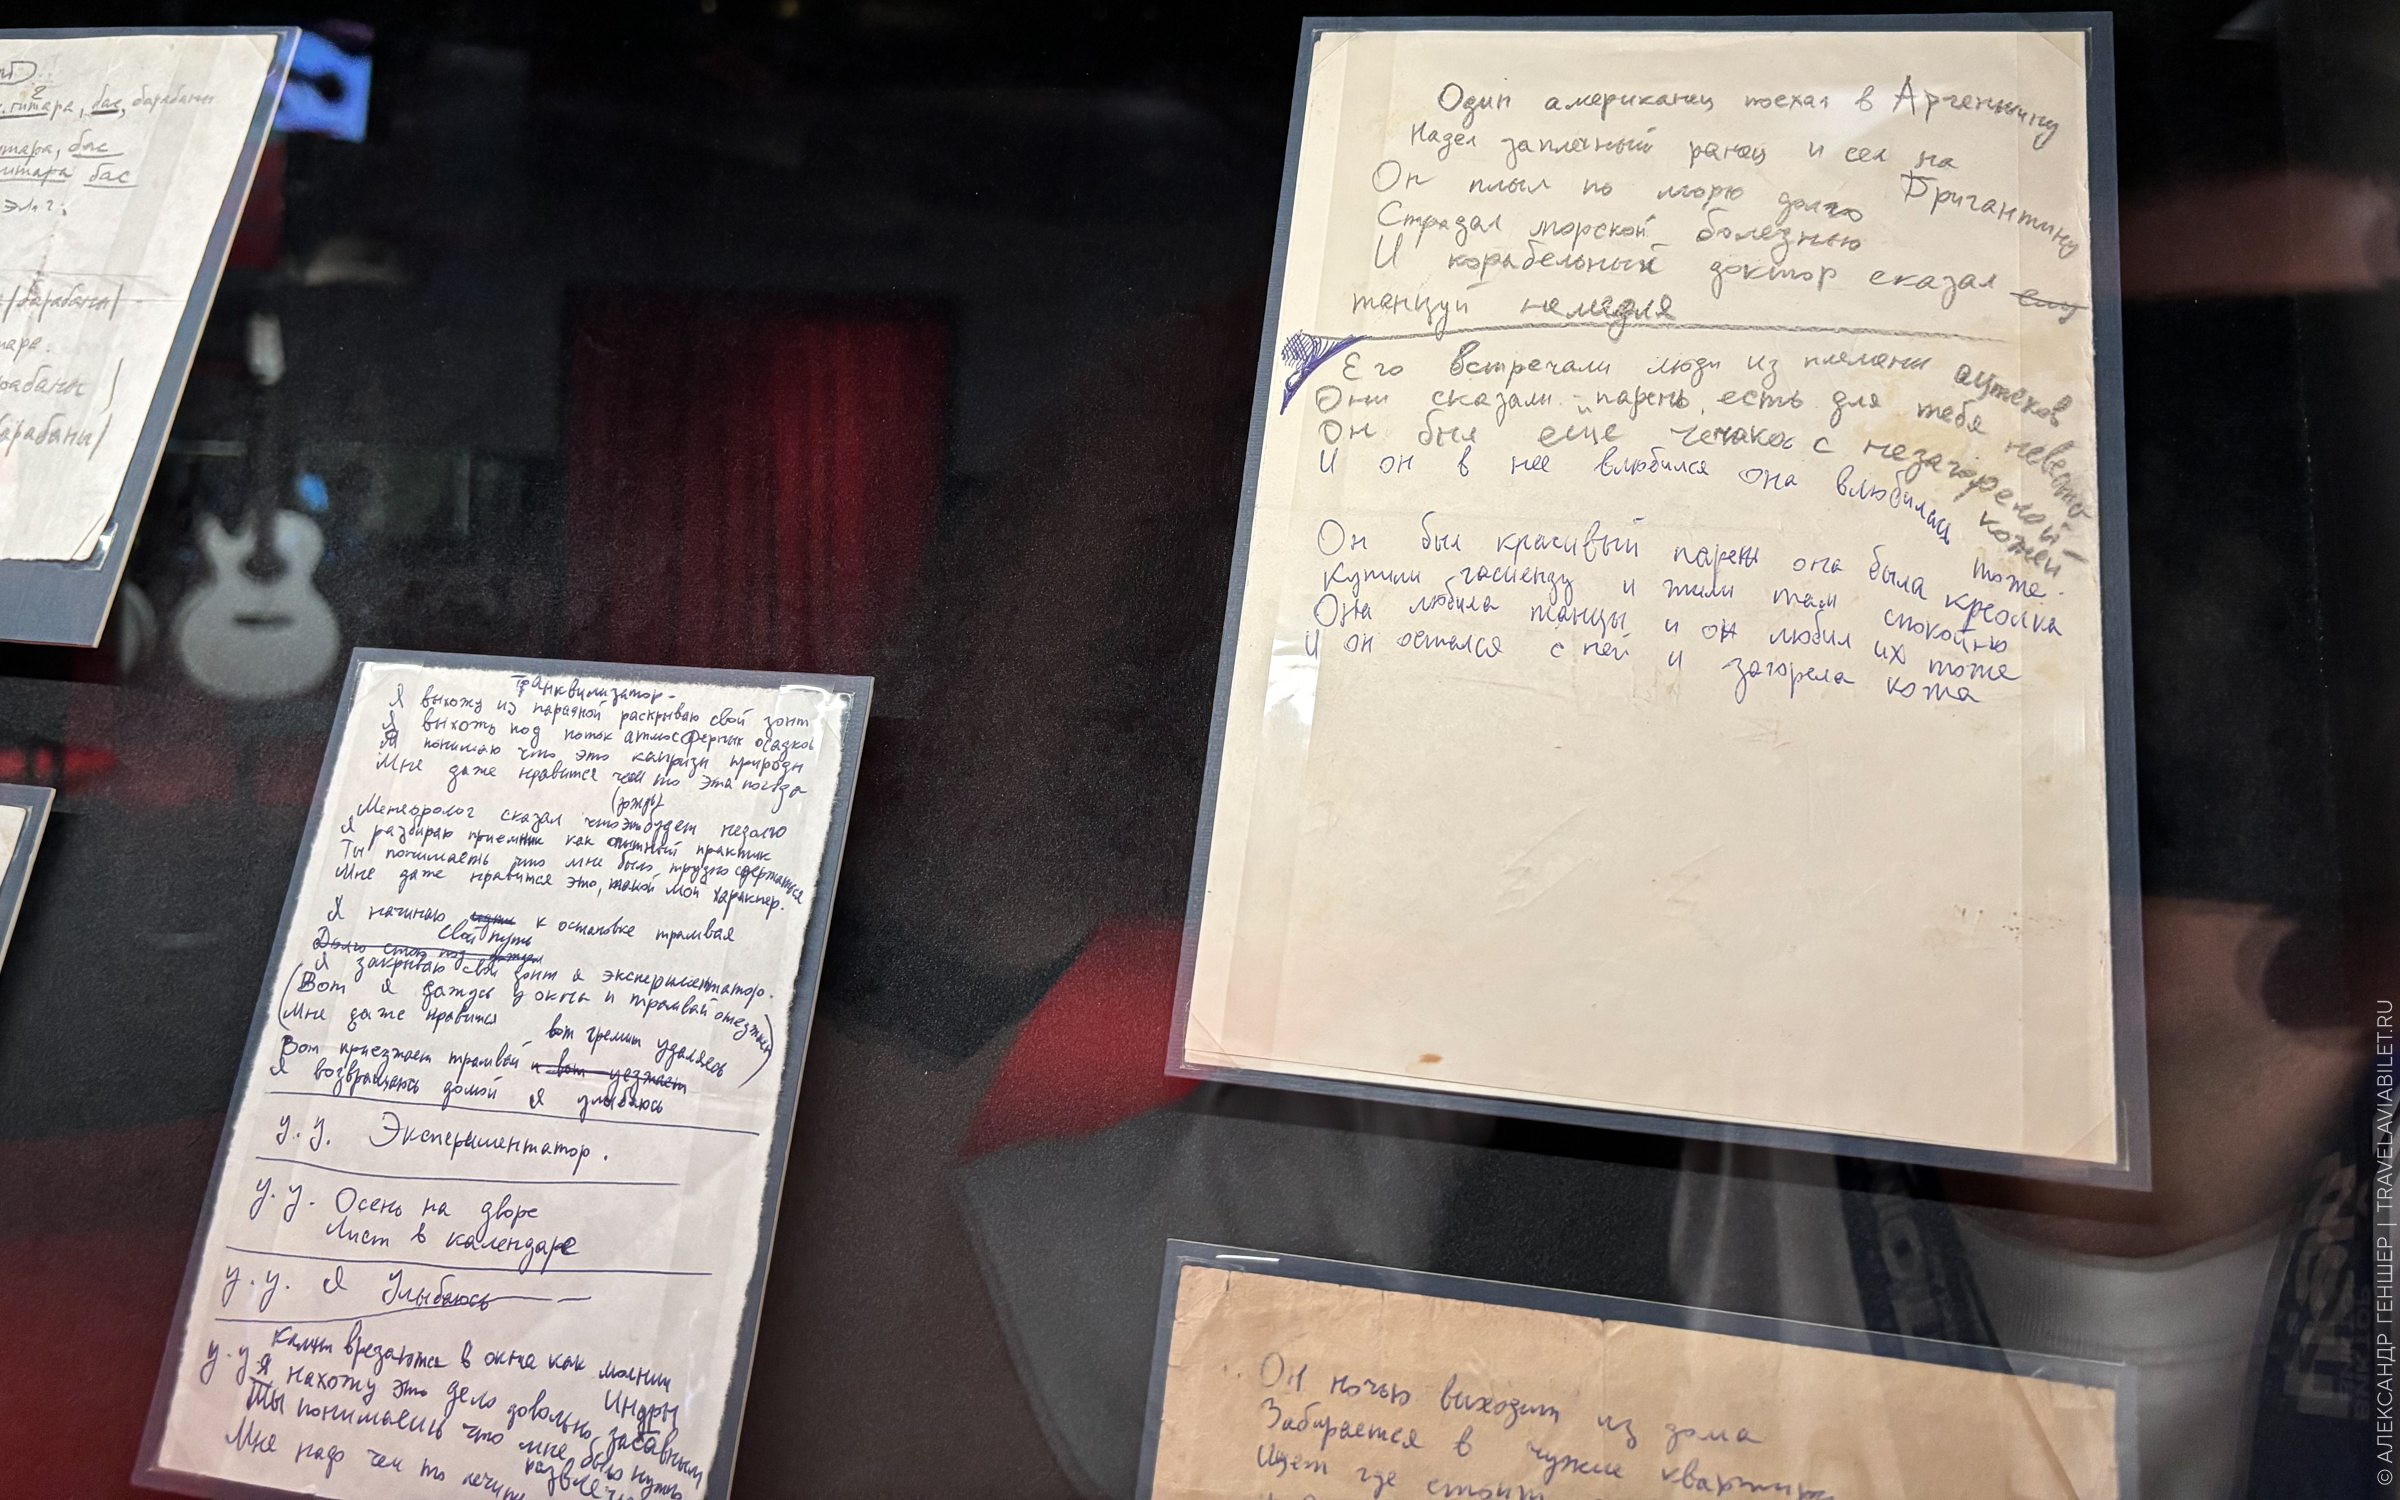 гитара, бас, барабаны
гитара, бас
гитара бас
барабаны
барабаны
барабаны
Транквилизатор -
Я выхожу из парадной раскрываю свой зонт
Я выхожу под поток атмосферных осадков
Я понимаю что это капризы природы
Мне даже нравится чем то эта погода
(дождь)
Метеоролог сказал что это будет недолго
Я разбираю приемник как опытный практик
Ты понимаешь что мне было трудно сдержаться
Мне даже нравится это, такой мой характер.
Я начинаю идти к остановке трамвая
свой путь
Долго стою под дождем
Я закрываю свой зонт я экспериментатор.
(Вот я сажусь у окна и трамвай отъезжает
Мне даже нравится
вот гремит удаляясь)
Вот приезжает трамвай и вот уезжает
Я возвращаюсь домой Я улыбаюсь
у.у. Экспериментатор.
у.у. Осень на дворе
Лист в календаре
у.у. Я Улыбаюсь
у.у. Капли врезаются в окна как молнии
Индры
Я нахожу это дело довольно забавным
Ты понимаешь что мне было нужно
Мне надо чем то
Один американец поехал в Аргентину
Надел заплечный ранец и сел на
Бригантину
Он плыл по морю долго
Страдал морской болезнью
И корабельный доктор сказал ему
танцуй немедля
Его встречали люди из племени ацтеков
Они сказали - парень, есть для тебя невеста
Он был еще чечако с незагорелой кожей
И он в нее влюбился она влюбилась тоже.
Он был красивый парень она была креолка
Купили гасиенду и жили там спокойно
Она любила танцы и он любил их тоже
И он остался с ней и загорела кожа
Он ночью выходит из дома
Забирается в чужие квартиры
Ищет где стоит
© АЛЕКСАНДР ГЕНШЕР | TRAVELAVIABILET.RU